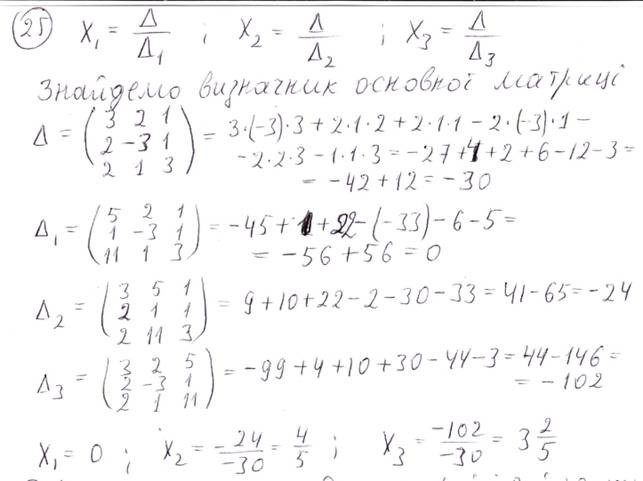 25 X₁ = Δ/Δ₁ ; X₂ = Δ/Δ₂ ; X₃ = Δ/Δ₃
Знайдемо визначник основної матриці
Δ = (3 2 1
2 -3 1
2 1 3) = 3·(-3)·3 + 2·1·2 + 2·1·1 - 2·(-3)·1 -
- 2·2·3 - 1·1·3 = -27 + 4 + 2 + 6 - 12 - 3 =
= -42 + 12 = -30
Δ₁ = (5 2 1
1 -3 1
11 1 3) = -45 + 1 + 22 - (-33) - 6 - 5 =
= -56 + 56 = 0
Δ₂ = (3 5 1
2 1 1
2 11 3) = 9 + 10 + 22 - 2 - 30 - 33 = 41 - 65 = -24
Δ₃ = (3 2 5
2 -3 1
2 1 11) = -99 + 4 + 10 + 30 - 44 - 3 = 44 - 146 =
= -102
X₁ = 0 ; X₂ = -24/-30 = 4/5 ; X₃ = -102/-30 = 3 2/5